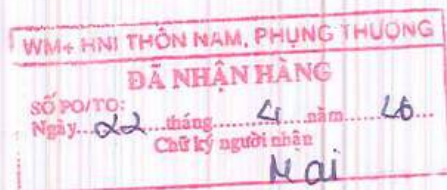 WM+ HNI THÔN NAM, PHỤNG THƯỢNG
ĐÃ NHẬN HÀNG
SỐ PO/TO:
Ngày...22...tháng...4...năm...26...
Chữ ký người nhận
Mai